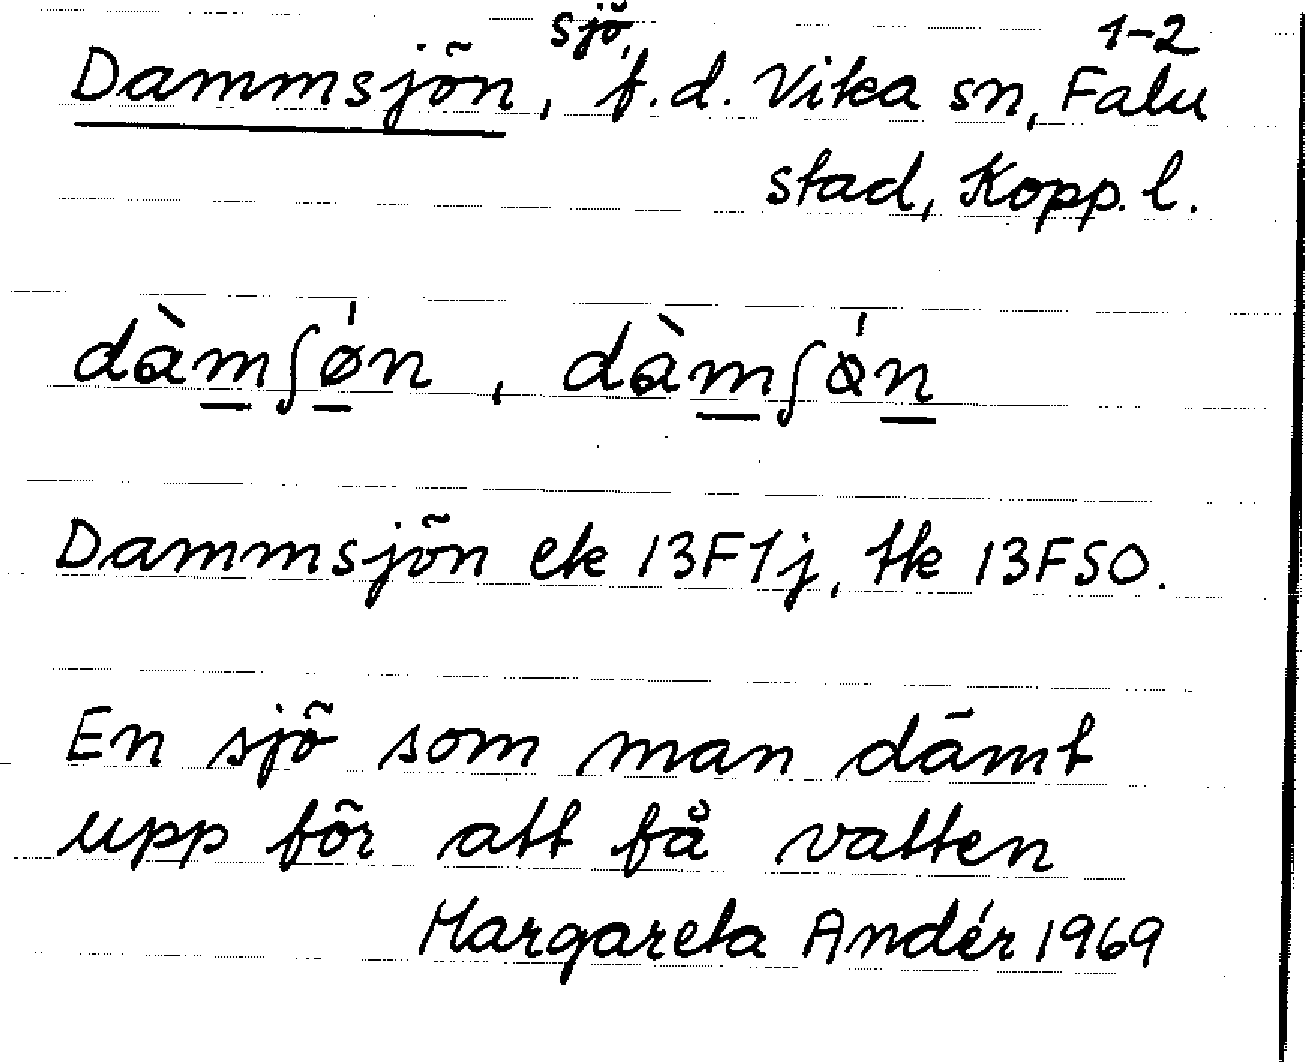 1-2
Dammsjön, sjö, f.d. Vika sn, Falu
stad, Kopp. l.
dàmʃǿn, dàmʃǿn
Dammsjön ek 13F1j, tk 13FSO.
En sjö som man dämt
upp för att få vatten
Margareta Andér 1969